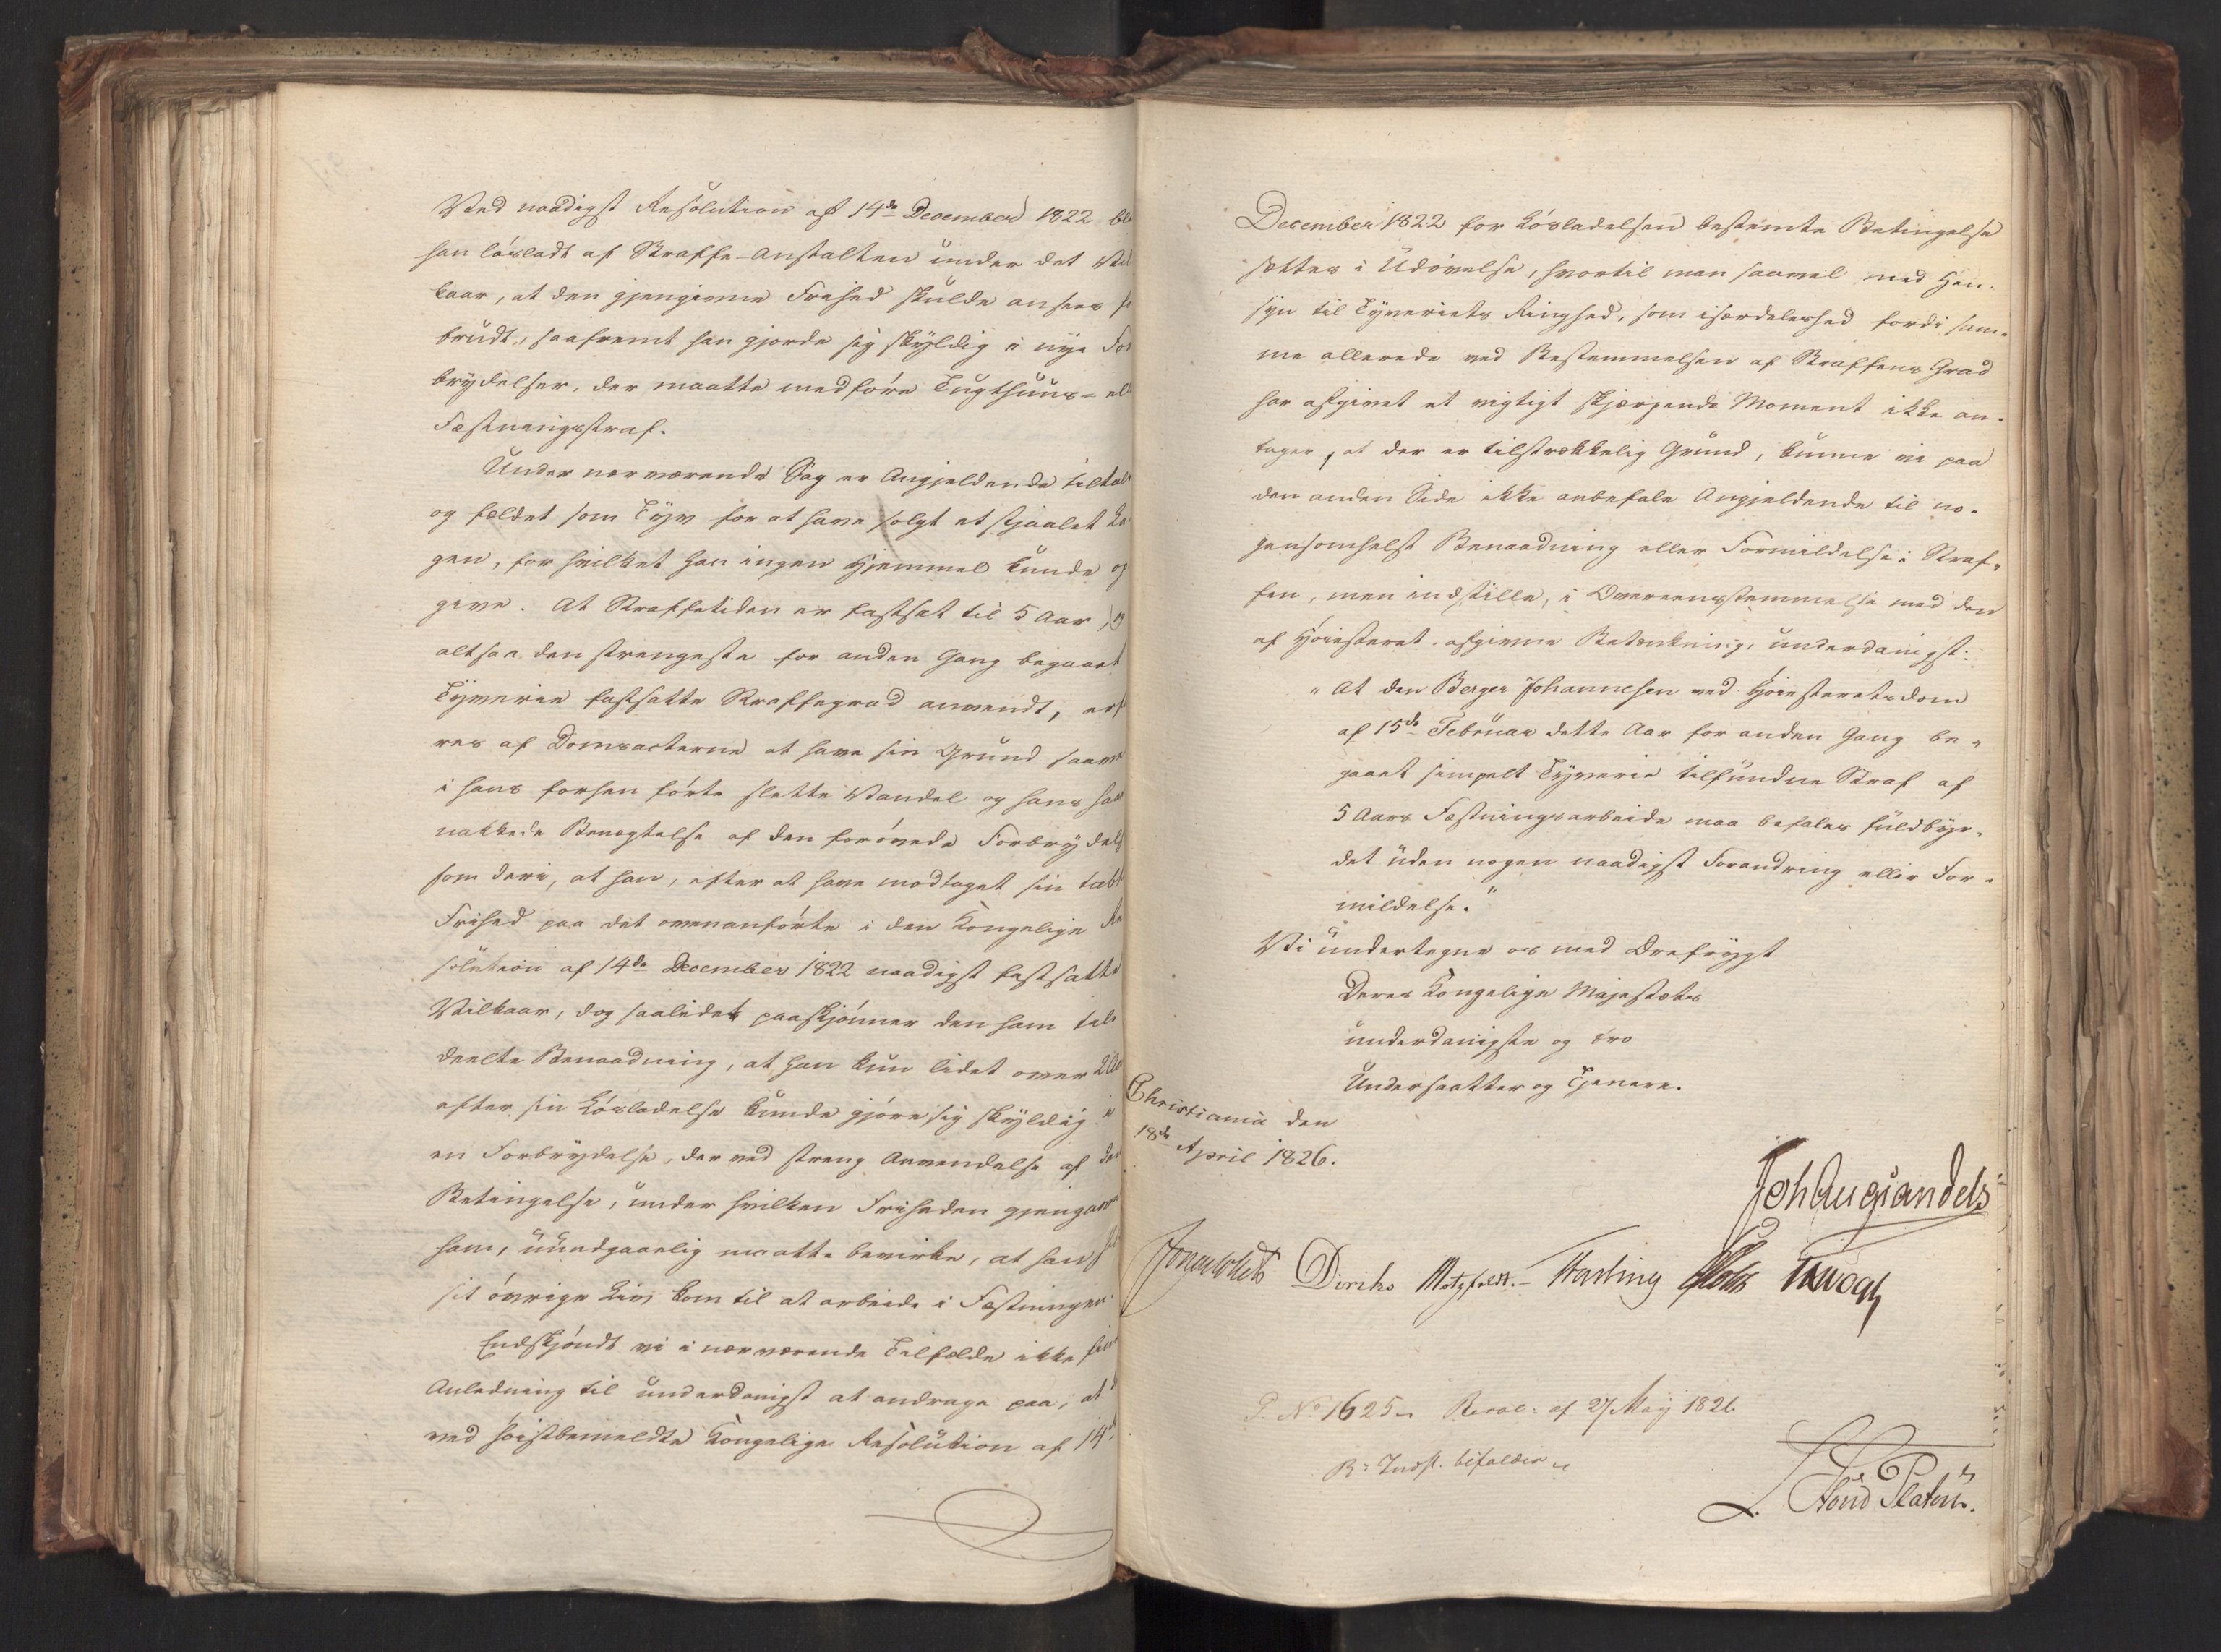 Ved naadigst Resolution af 14de December 1822 ble
han lósladt af Straffe-Anstalten under det Vil
kaar, at den gjengivne Frihed skulde ansees fo
brudt, saafremt han gjorde sig skyldig i nye For
brydelser, der maatte medføre Tugthuus- ell
Fæstningsstraf.
Under nærværende Sag er Angjeldende tiltal
og fældet som Tyv for at have solgt et stjaalet La
gen, for hvilket han ingen Hjemmel kunde op
give. At Straffetiden er fastsat til 5 Aar, og
altsaa den strengeste for anden Gang begaaet
Tyverie fastsatte Straffegrad anvendt, erf
res af Domsacterne at have sin Grund saave
i hans forhen førte slette Vandel og hans haard
nakkede Benægtelse af den forøvede Forbrydels
som deri, at han, efter at have modtaget sin tabt
Frihed paa det ovenanførte i den Kongelige Re
solution af 14de December 1822 naadigst fastsatte
Vilkaar, dog saalidet paaskjønner den ham til
deelte Benaadning, at han kun lidet over 2 Aar
efter sin Løsladelse kunde gjøre sig skyldig i
en Forbrydelse, der ved streng Anvendelse af den
Betingelse, under hvilken Friheden gjengaves
ham, uundgaaelig maatte bevirke, at han
sit øvrige Liv kom til at arbeide i Fæstningen.
Endskjøndt vi i nærværende Tilfælde ikke fin
Anledning til underdanigst at andrage paa, at d
ved høistbemeldte Kongelige Resolution af 14d
December 1822 for Løsladelsen bestemte Betingelse
sættes i Udøvelse, hvortil man saavel med Hen-
syn til Tyveriets Ringhed, som isærdeleshed fordi sam-
me allerede ved Bestemmelsen af Straffens Grad
har afgivet et vigtigt skjærpende Moment ikke an-
tager, at der er tilstrækkelig Grund, kunne vi paa
den anden Side ikke anbefale Angjeldende til no-
gensomhelst Benaadning eller Formildelse i Straf-
fen, men indstille, i Overeensstemmelse med den
af Høiesteret afgivne Betænkning, underdanigst:
"At den Berger Johannesen ved Høiesteretsdom
af 15de Februar dette Aar for anden Gang be-
gaaet simpelt Tyverie tilfundne Straf af
5 Aars Fæstningsarbeide maa befales fuldbyr-
det uden nogen naadigst Forandring eller For-
mildelse."
Vi undertegne os med Ærefrygt
Deres Kongelige Majestæts
underdanigste og tro
Undersaatter og Tjenere.
Christiania den
18de April 1826.
Joh Aug Sandels
Jonas Collett Diriks Motzfeldt. Fasting Holst Krogh
P. No 1625. Resol: af 27 May 1826
R: Indst. bifaldes
L. Löwd Platou.